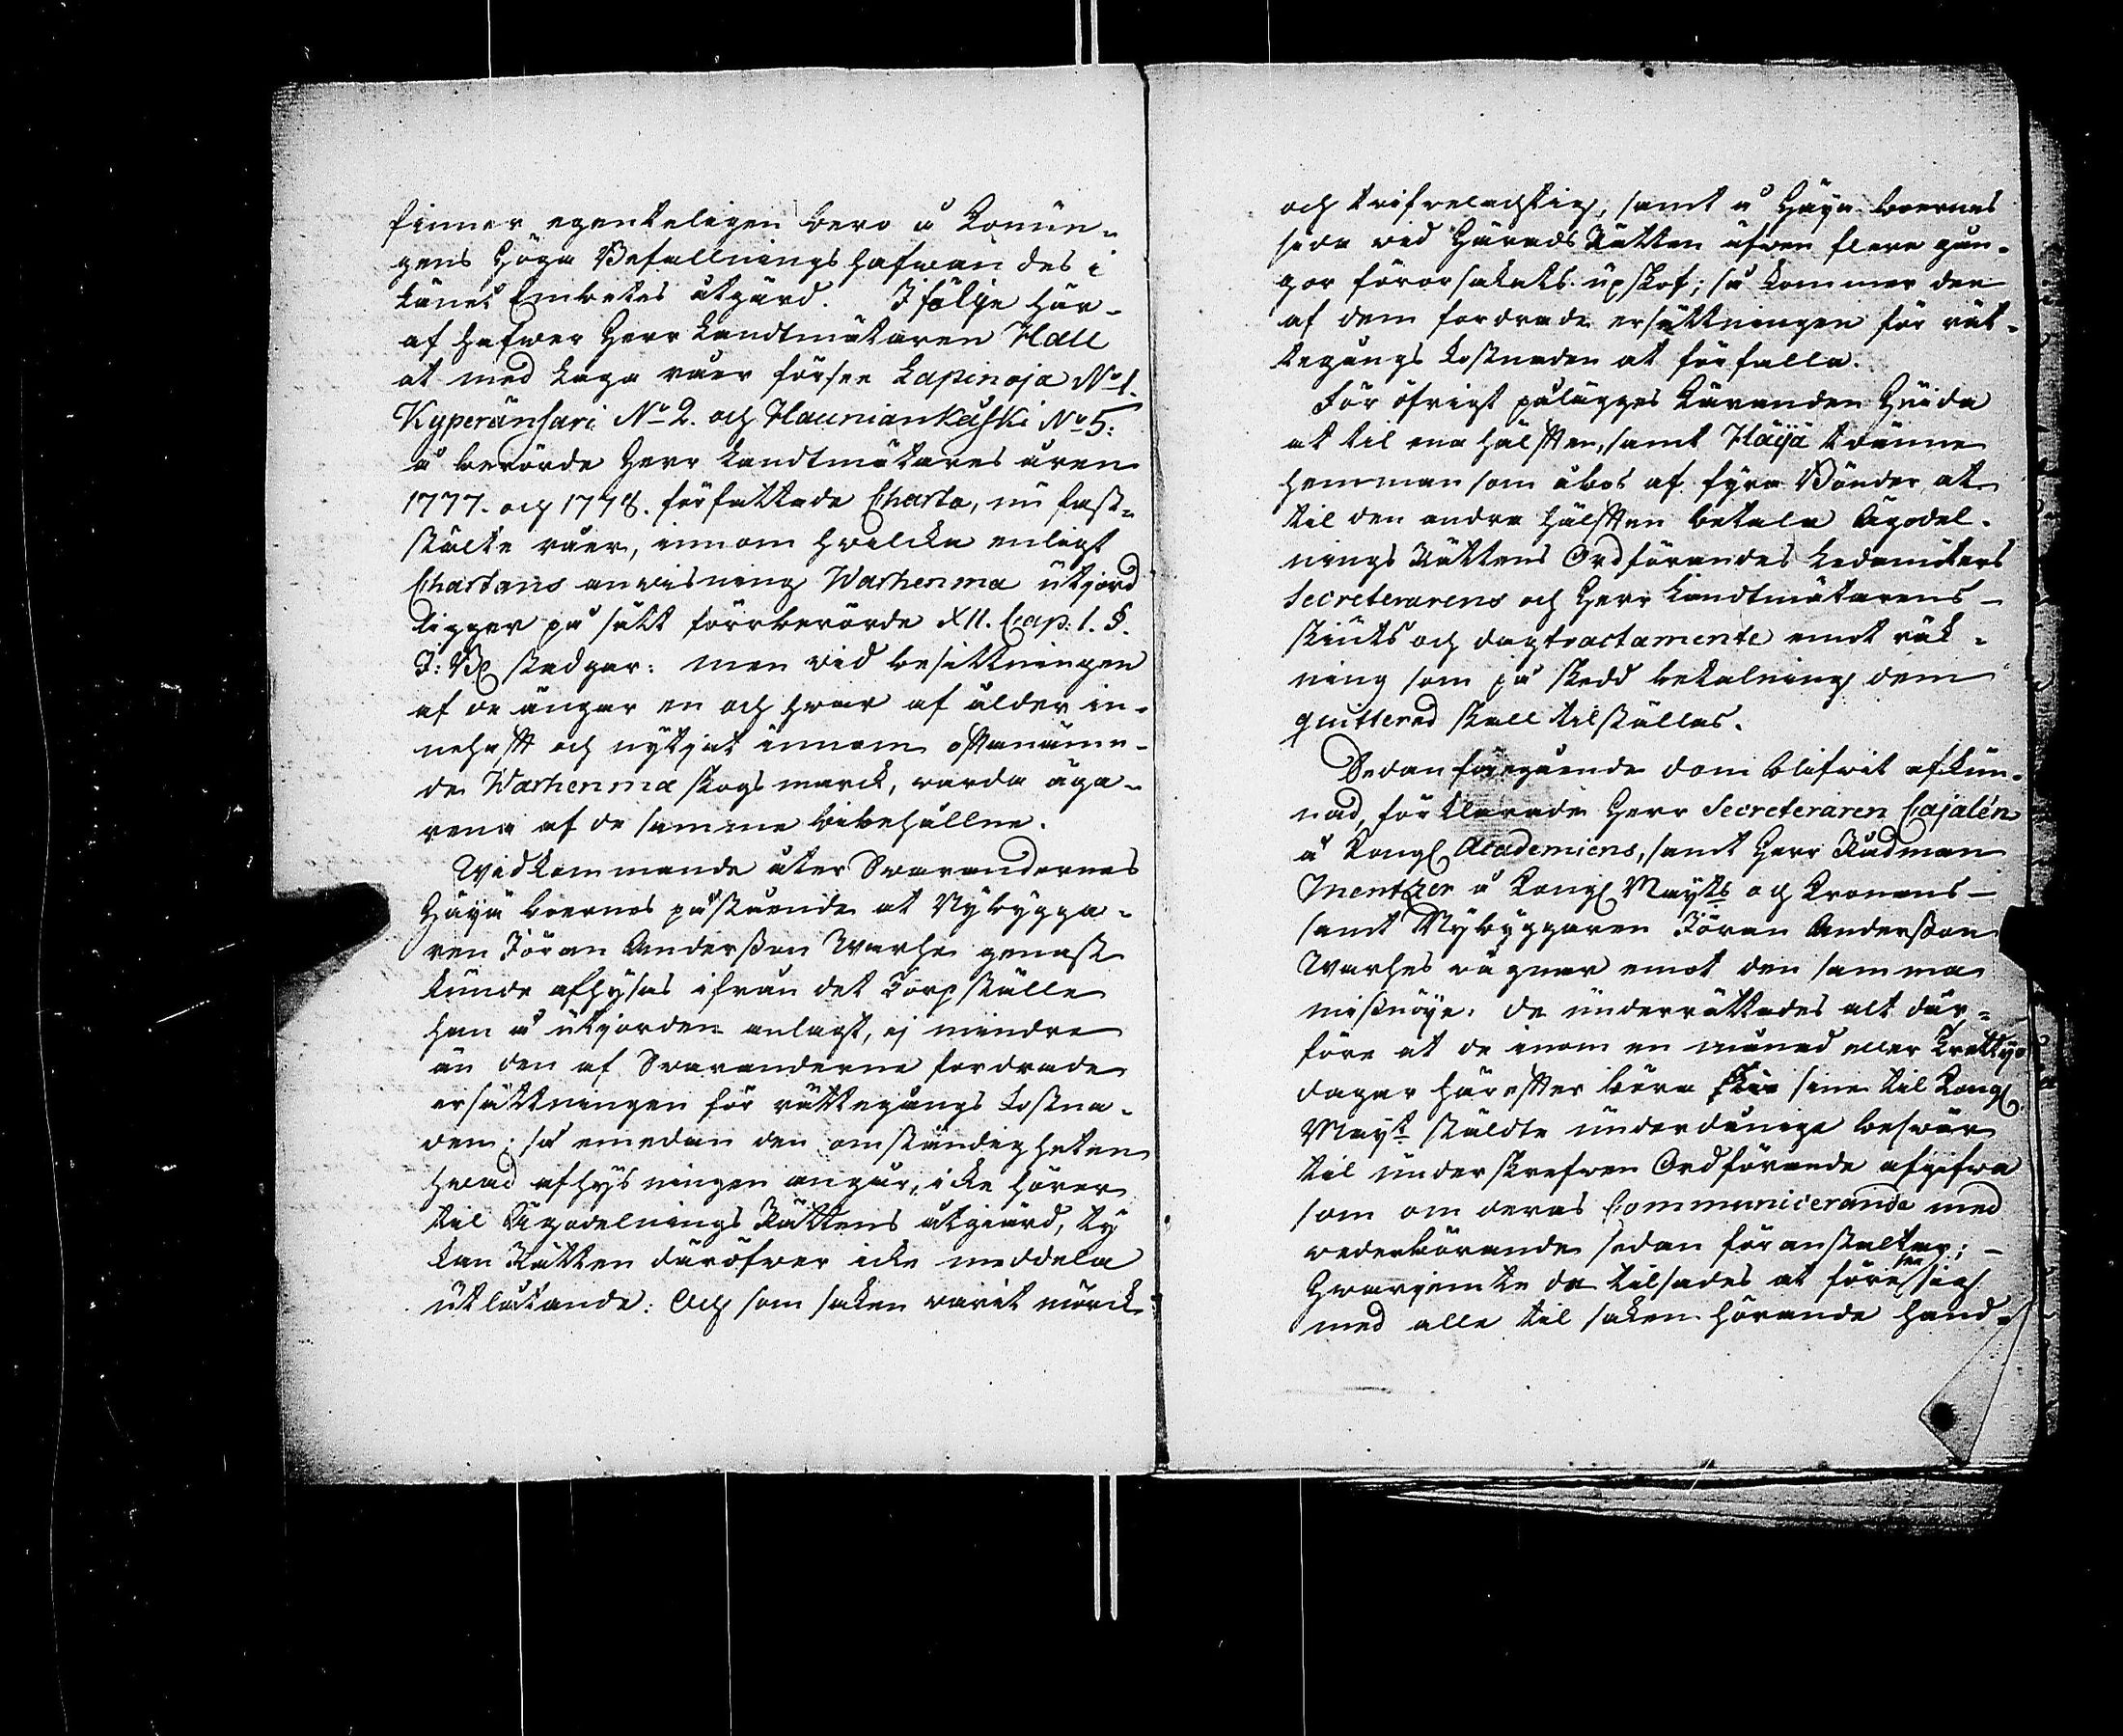 finner egenteligen bero å Konun-
gens Höga Befallningshafwan des i
länet Embetes åtgärd. I fölge här-
af hafwer Herr Landtmätaren Hall
at med laga råer förse Lapinoja No 1.
Kyperänsari No 2. och Hauniankåski No 5:
å berörde Herr Landtmätares åren
1777. och 1778. författade Charta, nu fast-
stälte råer, innom hwilcka enligt
Chartans anvisning Warhenma utjord
ligger på sätt förrberörde XII. Cap: 1. §.
J: B. stadgar: men vid besittningen
af de ängar en och hwar af ålder in-
nehaft och nytjat innom oftanämn-
de Warhenma skogsmarck, warda äga-
rena af de samme bibehållne.
Widkommande åter Swarandernes
Häyä boernes påstående at Nybygga-
ren Jöran Andersson Warhe genast
kunde afhysas ifrån det Torpställe
han å utjorden anlagt, ej mindre
än den af Swaranderne fordrade
ersättningen för rättegångs kostna-
den; så emedan den omständigheten
hwad afhysningen angår, icke hörer
til Ägodelnings Rättens åtgiärd, ty
kan Rätten däröfwer icke meddela
utlåtande: Och som saken varit mörck
och twifwelachtig, samt å Häyä boernes
sida wid Härads Rätten äfwen flere gån-
gor förorsakats upskof; så kommer den
af dem fordrade ersättningen för rät-
tegångs kostnaden at förfalla.
För öfrigt pålägges Käranden Heida
at til ena hälften, samt Häyä twänne
hemman som åbos af fyra Bönder, at
til den andra hälften betala Ägodel-
nings Rättens Ordförandes Ledamöters
Secreterarens och Herr Landtmätarens-
skiuts och dagtractamente emot räk-
ning som på skedd betalning dem
quitterad skall tilställas.
Sedan föregående dom blifwit afkun-
nad, förklarade Herr Secreteraren Cajalén
å Kongl Academiens, samt Herr Rådman
Mentzer å Kongl Mayts och Cronans-
samt Nybyggaren Jöran Andersson
Warhes vägnar emot den samma
missnöye. De underrättades alt där-
före at de inom en månad eller Trettyo
dagar härefter böra sine til Kongl
Mayt stäldte underdånige beswär
til underskrefwen Ordförande afgifwa
som om deras Communicerande med
wederbörande sedan föranstaltar; -
Hwarjemte de tilsades at förese sig
med alle til saken hörande hand-